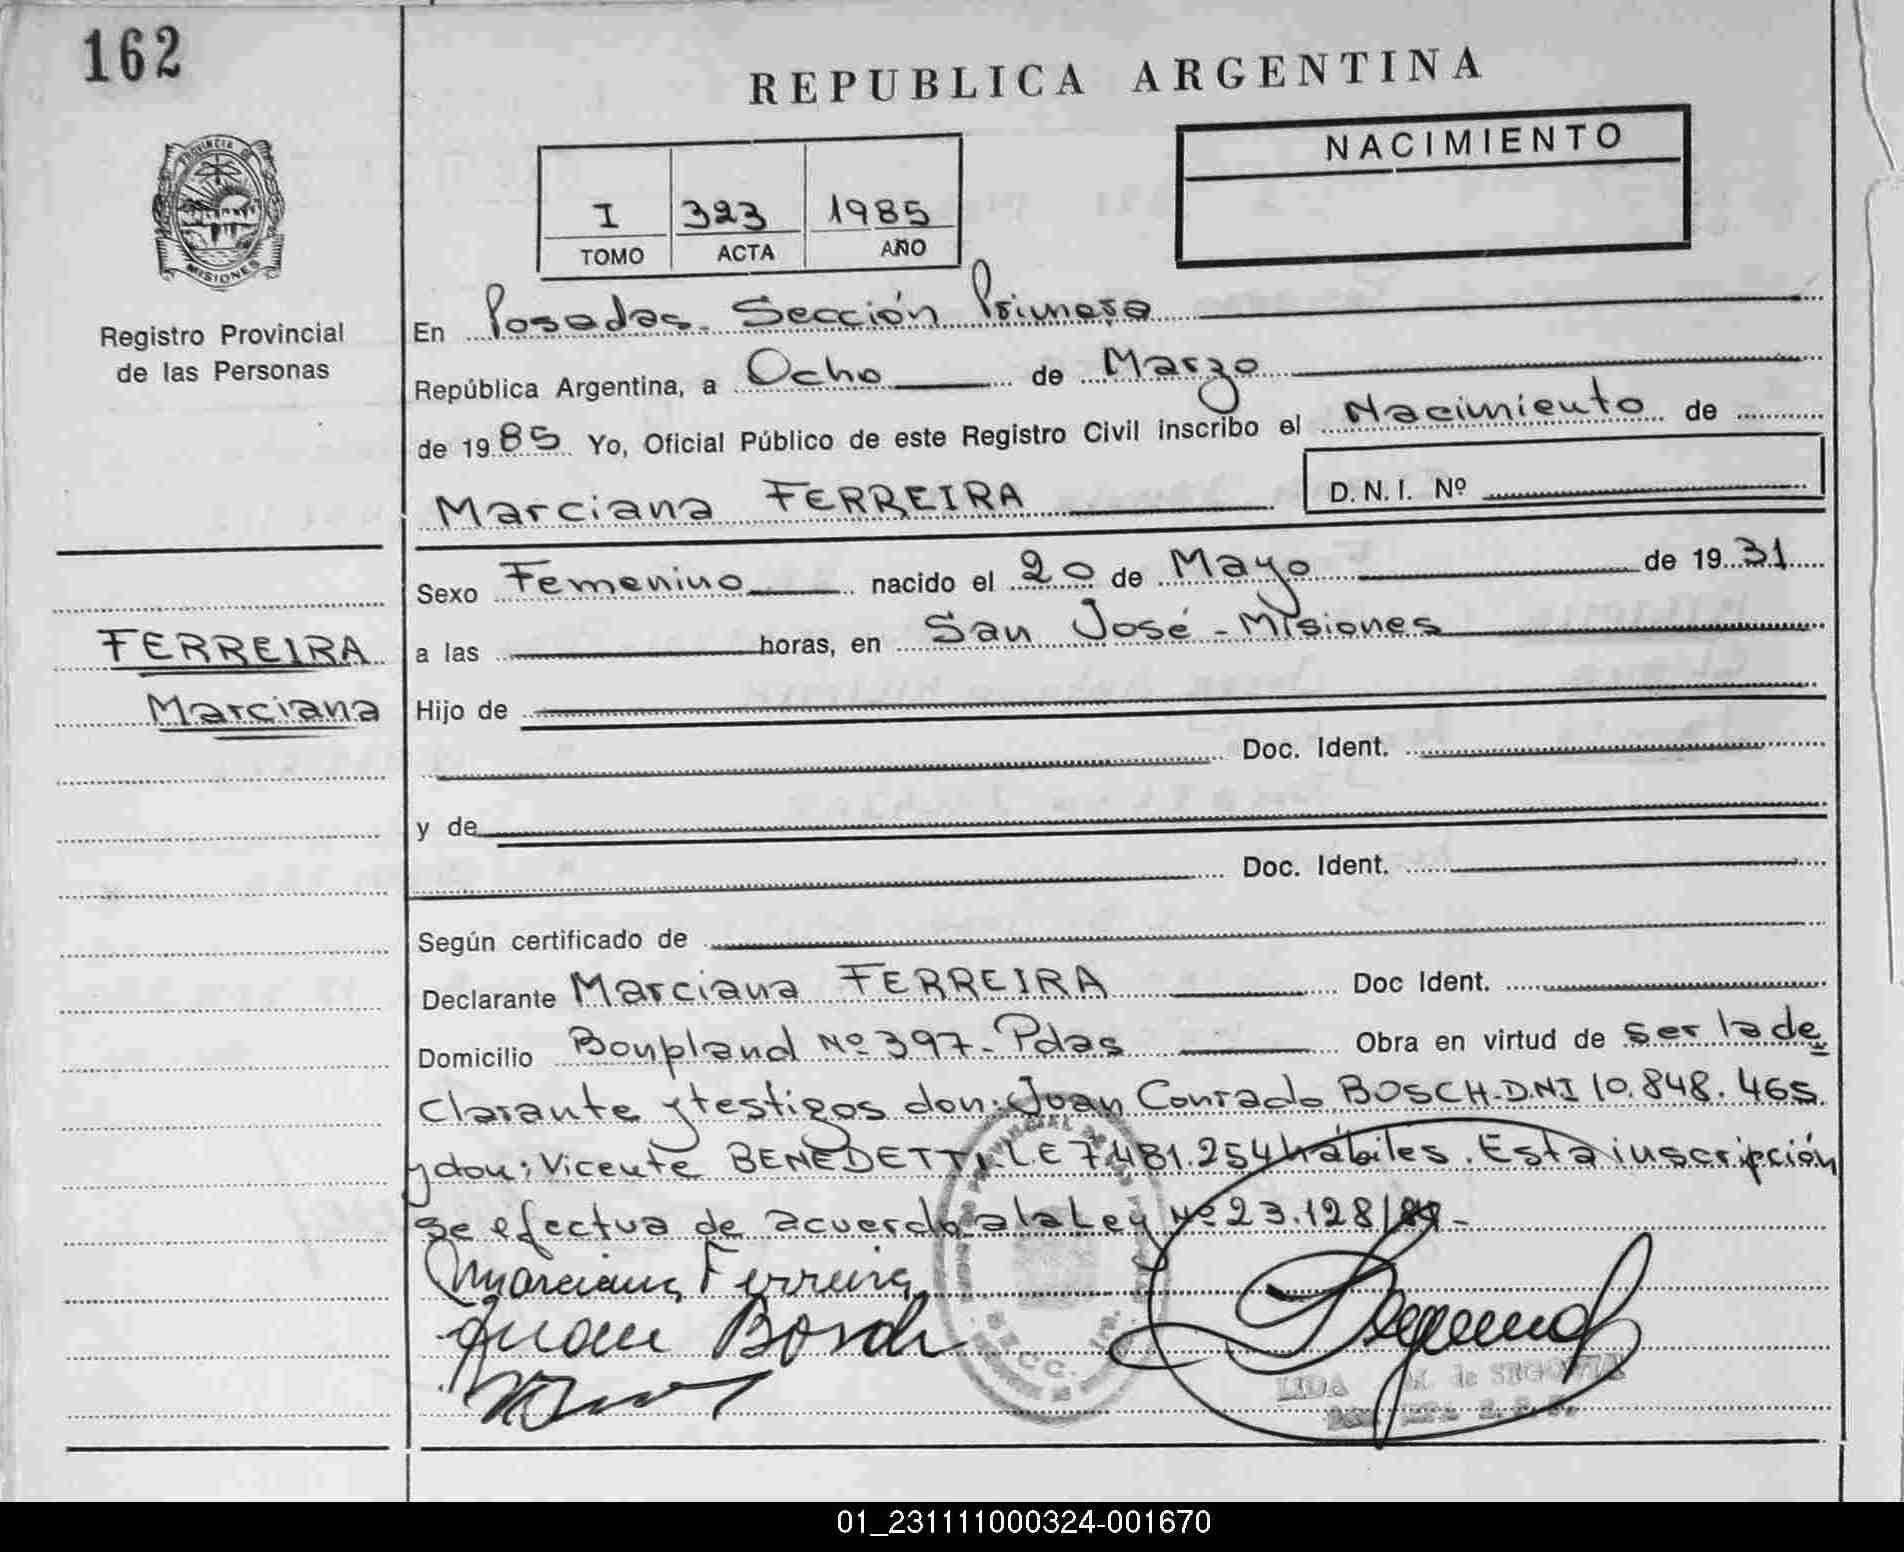 162
REPUBLICA ARGENTINA
NACIMIENTO
I 323 1985
TOMO ACTA AÑO
PROVINCIA DE
MISIONES
Registro Provincial
de las Personas
En Posadas. Sección Primera
República Argentina, a Ocho de Marzo
de 1985 Yo, Oficial Público de este Registro Civil inscribo el Nacimiento de
Marciana FERREIRA D.N.I. Nº
Sexo Femenino nacido el 20 de Mayo de 1931
FERREIRA
Marciana
a las horas, en San José - Misiones
Hijo de
Doc. Ident.
y de
Doc. Ident.
Según certificado de
Declarante Marciana FERREIRA Doc Ident.
Domicilio Bonpland Nº 397- Pdas Obra en virtud de ser la de
clarante y testigos don: Juan Conrado BOSCH. DNI 10.848.465
y don: Vicente BENEDETTI. LE 7.481.254 hábiles. Esta inscripción
se efectua de acuerdo a la Ley Nº 23.128/84-
Marciana Ferreira
Juan Bosch
LIDA M. de SEGOVIA
SECC. 1ra.
01_231111000324-001670